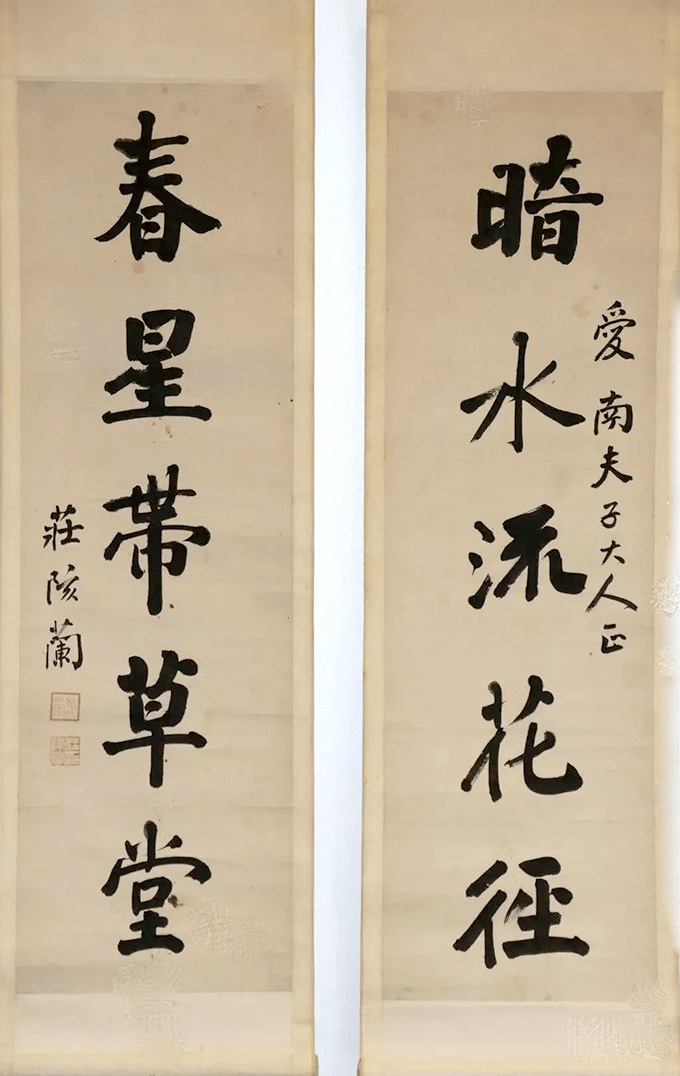 愛南夫子大人正
暗水流花徑
春星帶草堂
莊陔蘭